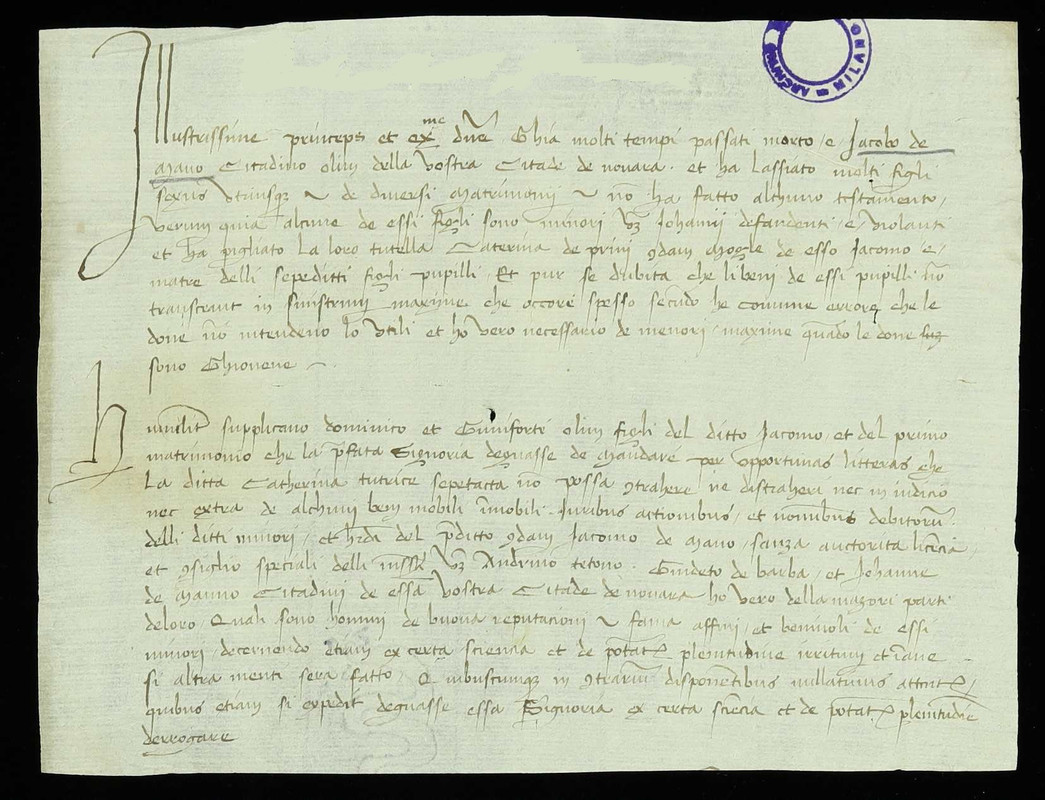 Illustrissime princeps et exme dne Ghia molti tempi passati morto e Jacobo de
Mano Citadino olim della vostra Citade de novara et ha lassiato molti figli
sexus utriusque de diversi matrimonii non ha fatto alchuno testamento
verum quia alcuni de essi figli sono minori vz Johanni defandenti e violanti
et ha pigliato la loro tutella Caterina de prini qdam mogle de esso Jacomo e
matre delli sepeditti figli pupilli Et pur se dubita che li beni de essi pupilli no
transeant in sinistrum maxime che occore spesso secundo he comune errore che le
done no intendeno lo utili et ho vero necessario de menori maxime quado le done
sono Ghiovene
humilit supplicano dominico et Guniforti olim figli del ditto Jacomo et del primo
matrimonio che la pfata Signoria degnasse de mandare per opportunas litteras che
la ditta Catherina tutrice sepetacta no possa qtrahere ne distraheri nec in iudicio
nec extra de alchuni beni mobili imobili Iuribus actionibus et nominibus debitorum
delli ditti minori et hedi del pditto qdam Jacomo de mano sanza auctorita licecia
et qsiglio speciali delli infsti vz Andrino tetono Guideto de barba et Johanne
de manno Citadini de essa vostra Citade de novara ho vero della mazori parti
deloro Quali sono homini de buona reputacioni fama affini et benivoli de essi
minori decernendo etiam ex certa sciencia et de potatis plenitudine irritum et inane
si altra menti sera fatto Quibuscumque in qtrarium disponentibus nullatinus attentis
quibus etiam si expedit degnasse essa Signoria ex certa sciecia et de potatis plenitudie
derrogare
MILANO